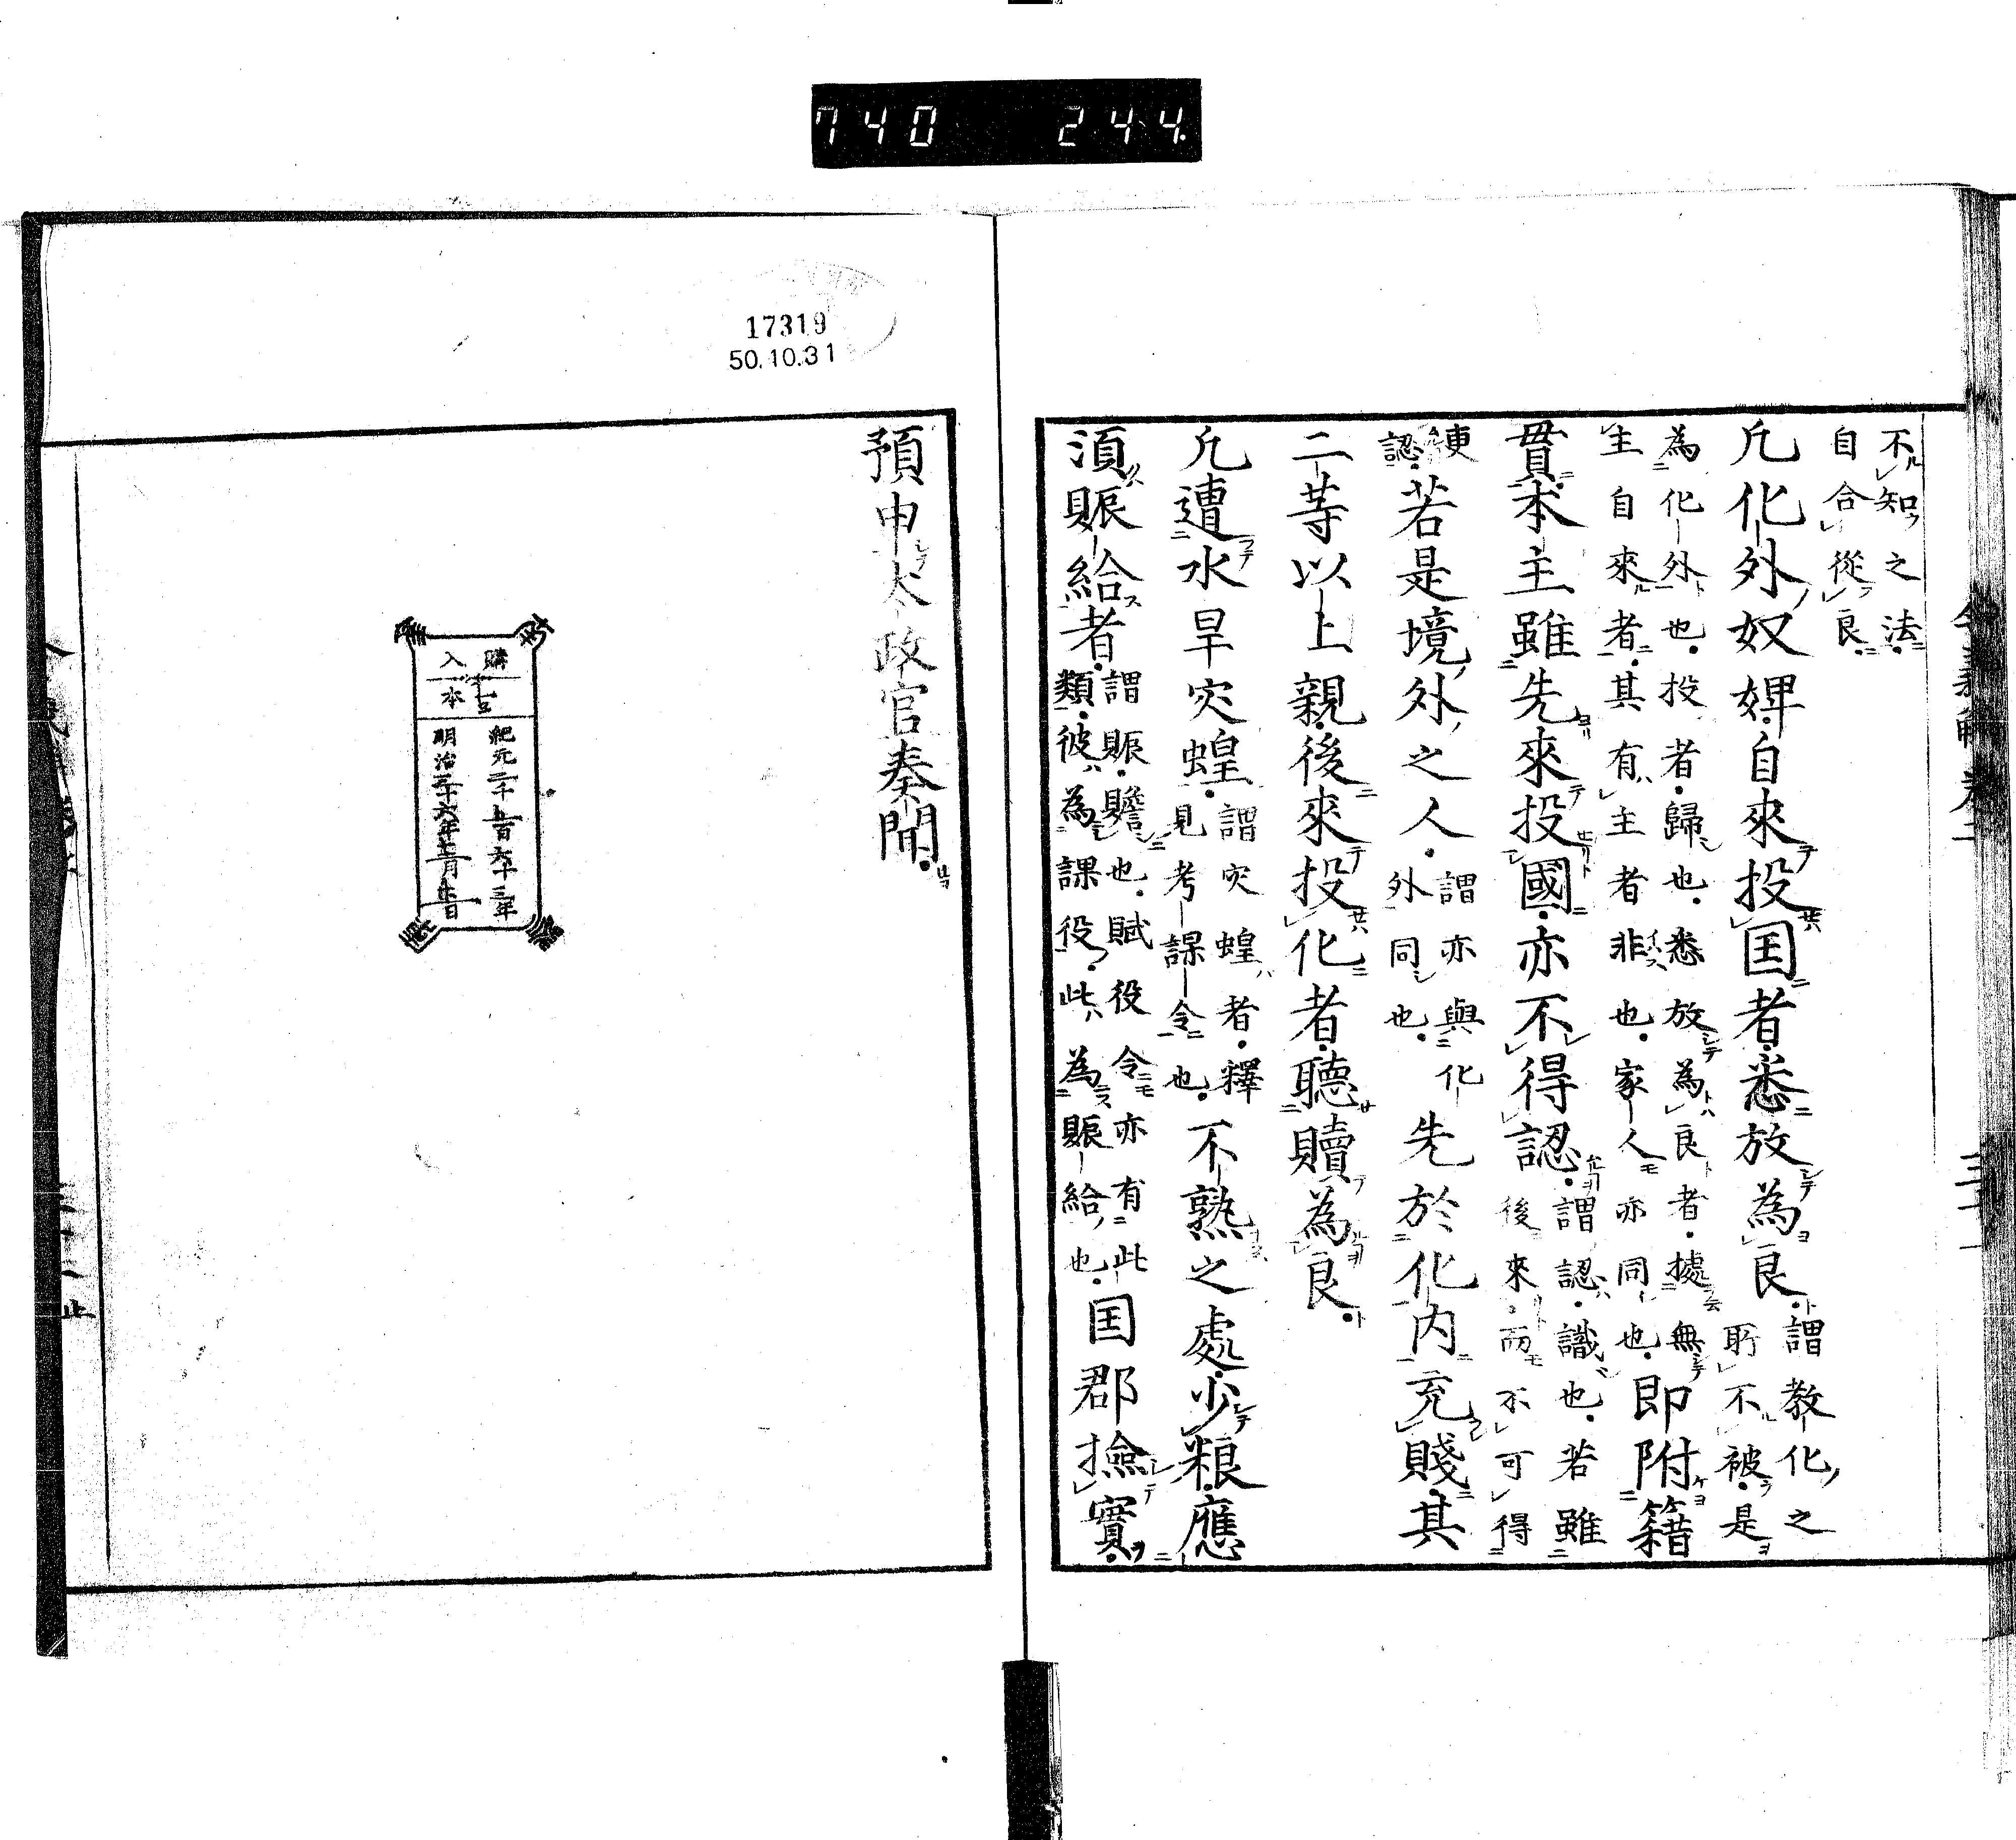 740 244
不知之法
自合從良
凢化外奴婢自來投国者悉放為良謂教化之
所不被是
為化外也投者歸也悉放為良者據無
主自來者其有主者非也家人亦同也即附籍
貫本主雖先來投國亦不得認謂認識也若雖
後來而不可得
更
認若是境外之人謂亦與化
外同也先於化內充賤其
二等以上親後來投化者聽贖為良
凢遭水旱灾蝗謂灾蝗者釋
見考課令也不熟之處少粮應
須賑給者謂賑贍也賦役令亦有此
類彼為課役此為賑給也国郡撿實
預申太政官奏聞
17319
50.10.31
購入
本
紀元二千五百六十三年